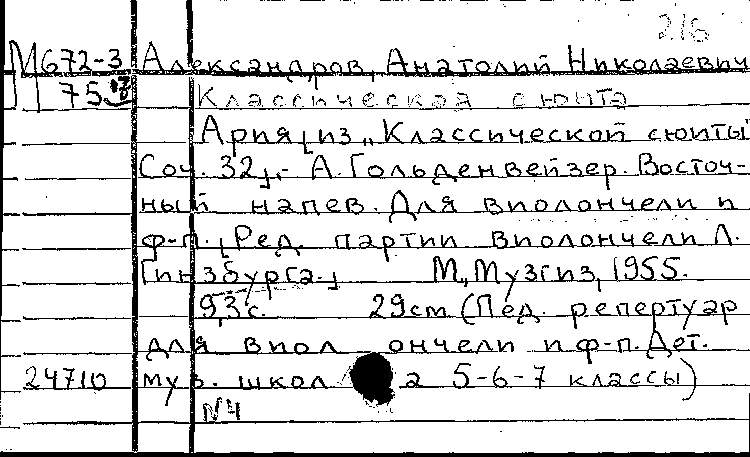 216
М672-3 Александров, Анатолий Николаевич
75
Классическая сюита
Ария [из „Классической сюиты
Соч. 32],- А. Гольденвейзер. Восточ-
ный напев. Для виолончели и
ф-п. [Ред. партии виолончели Л.
Гинзбурга.] М., Музгиз, 1955.
9,3 с. 29см (Пед. репертуар
для виол ончели и ф-п. Дет.
24710 муз. школ а 5-6-7 классы)
№4